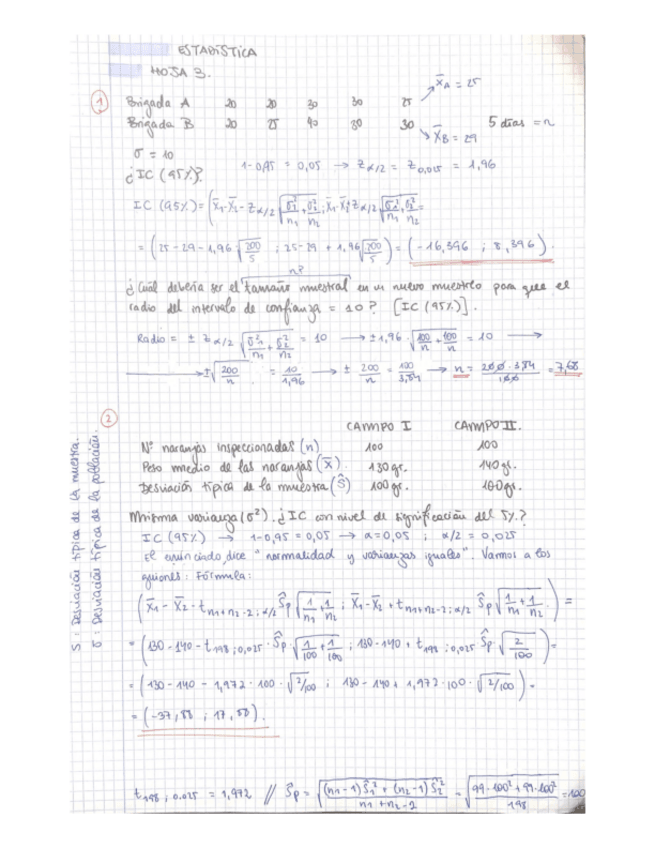 ESTADÍSTICA
HOJA 3.
1 Brigada A 20 20 30 30 25 → X̄A = 25
Brigada B 20 25 40 30 30 → X̄B = 29 5 días = n
σ = 10
¿IC (95%)? 1-0,95 = 0,05 → Zα/2 = Z0,025 = 1,96
IC (95%) = (X̄1-X̄2 - Zα/2 √(σ1²/n1 + σ2²/n2) ; X̄1-X̄2 + Zα/2 √(σ1²/n1 + σ2²/n2)) =
= (25-29-1,96 √(200/5) ; 25-29 + 1,96 √(200/5)) = (-16,396 ; 8,396).
n?
¿Cuál debería ser el tamaño muestral en un nuevo muestreo para que el
radio del intervalo de confianza = 10? [IC (95%)].
Radio = ± Zα/2 √(σ1²/n1 + σ2²/n2) = 10 → ±1,96 · √(100/n + 100/n) = 10 →
→ ±√(200/n) = 10/1,96 → ± 200/n = 100/3,84 → n = 200 · 3,84/100 = 7,68
2 CAMPO I CAMPO II.
Nº naranjas inspeccionadas (n) 100 100
Peso medio de las naranjas (X̄) 130gr. 140gr.
Desviación típica de la muestra (Ŝ) 100gr. 100gr.
Misma varianza (σ²). ¿IC con nivel de significación del 5%?
IC (95%) → 1-0,95 = 0,05 → α = 0,05 ; α/2 = 0,025
El enunciado dice "normalidad y varianzas iguales". Vamos a los
guiones: Fórmula:
(X̄1 - X̄2 - t n1+n2-2 ; α/2 Ŝp √(1/n1 + 1/n2) ; X̄1 - X̄2 + t n1+n2-2 ; α/2 Ŝp √(1/n1 + 1/n2)) =
= (130-140 - t198 ; 0,025 · Ŝp · √(1/100 + 1/100) ; 130-140 + t198 ; 0,025 Ŝp · √(2/100)) =
= (130-140 - 1,972 · 100 · √(2/100) ; 130-140 + 1,972 · 100 · √(2/100)) =
= (-37,88 ; 17,88).
t198 ; 0.025 = 1,972 // Ŝp = √(((n1-1)Ŝ1² + (n2-1)Ŝ2²)/(n1+n2-2)) = √((99·100² + 99·100²)/198) = 100
S : Desviación típica de la muestra.
σ : Desviación típica de la población.